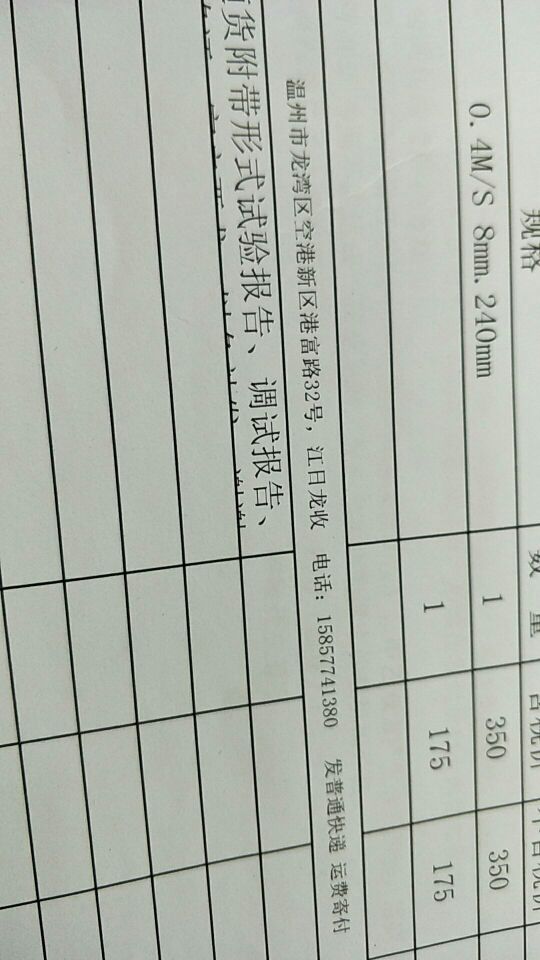 规格 数量 含税价
0.4M/S 8mm.240mm 1 350 350
1 175 175
温州市龙湾区空港新区港富路32号，江日龙收 电话：15857741380 发普通快递 运费寄付
货附带形式试验报告、调试报告、